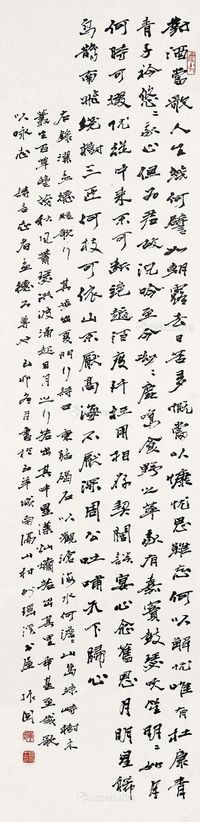 對酒當歌人生幾何譬如朝露去日苦多慨當以慷憂思難忘何以解憂唯有杜康青
青子衿悠悠我心但為君故沉吟至今呦呦鹿鳴食野之苹我有嘉賓鼓瑟吹笙明明如月
何時可掇憂從中來不可斷絕越陌度阡枉用相存契闊談宴心念舊恩月明星稀
烏鵲南飛繞樹三匝何枝可依山不厭高海不厭深周公吐哺天下歸心
右錄漢孟德短歌行 其步出夏門行詩曰 東臨碣石以觀滄海水何澹澹山島竦峙樹木
叢生百草豐茂秋風蕭瑟洪波湧起日月之行若出其中星漢燦爛若出其里幸甚至哉歌
以詠志 己卯冬月書於羊城南